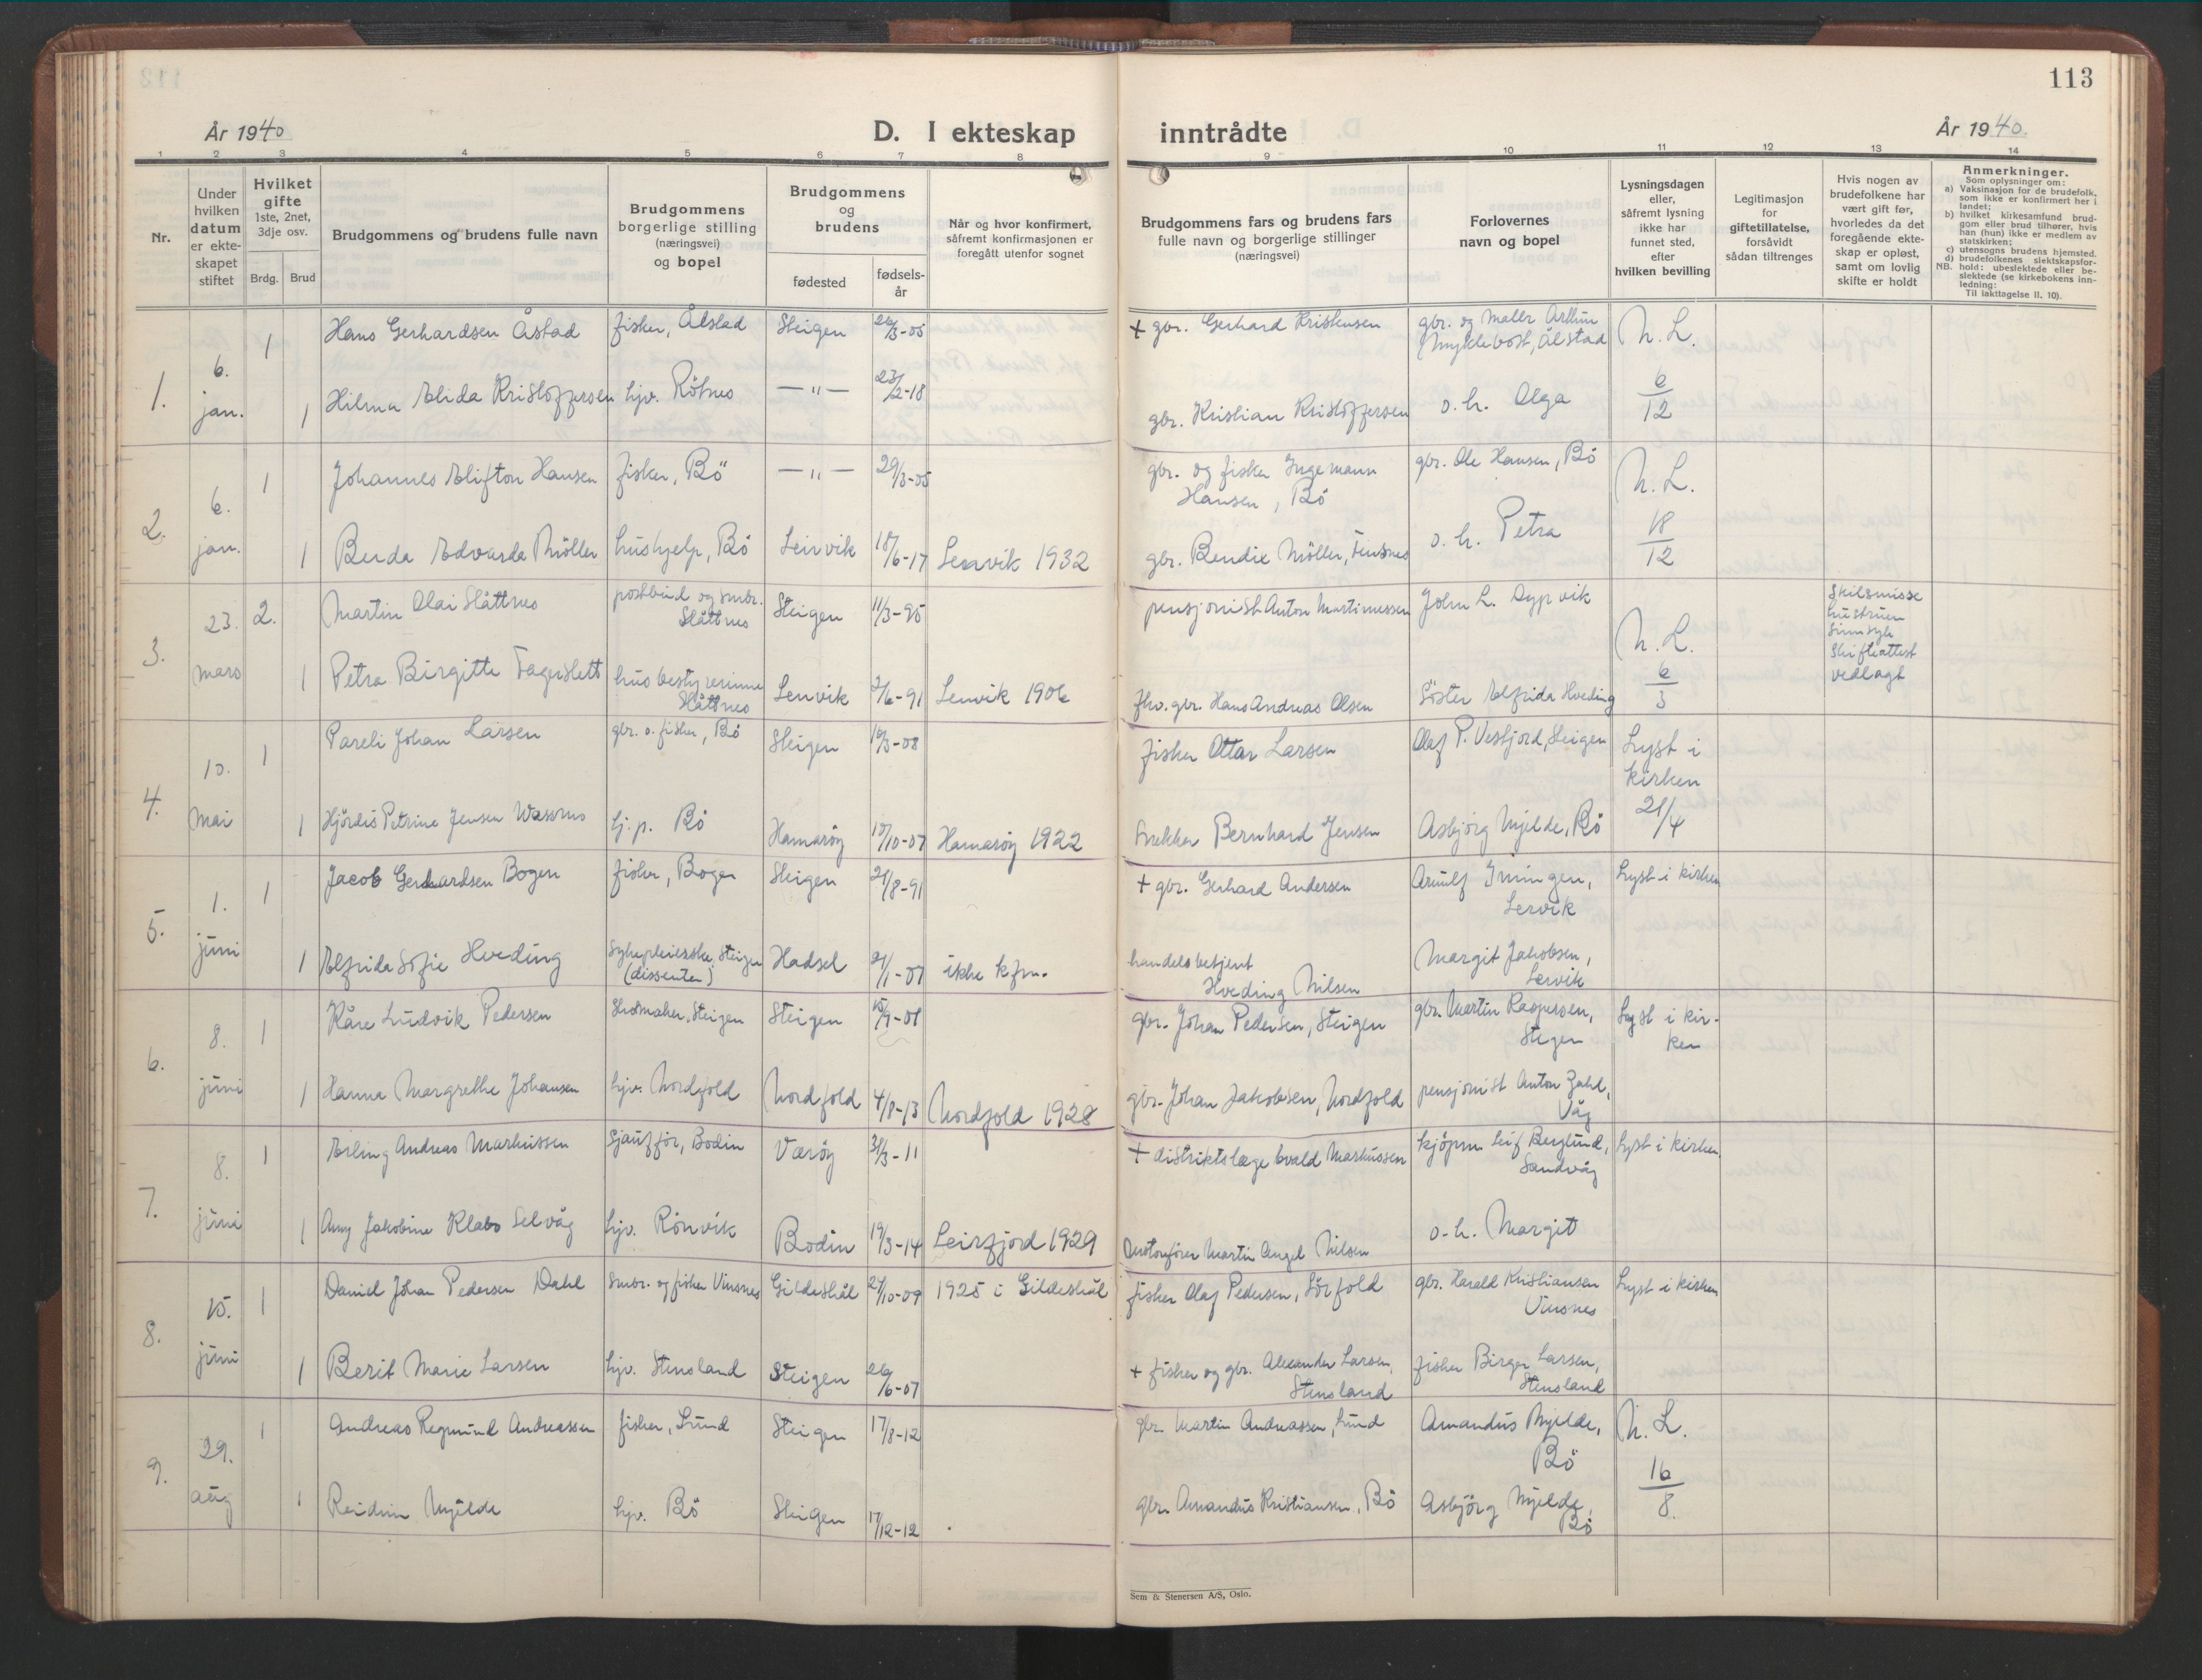 113
År 1940
D. I ekteskap inntrådte
År 1940
1 2 3 4 5 6 7 8 9 10 11 12 13 14
Nr.
Under hvilken datum er ekteskapet stiftet
Hvilket gifte 1ste, 2net, 3dje osv.
Brdg. Brud
Brudgommens og brudens fulle navn
Brudgommens borgerlige stilling (næringsvei) og bopel
Brudgommens og brudens
fødested
fødselsår
Når og hvor konfirmert, såfremt konfirmasjonen er foregått utenfor sognet
Brudgommens fars og brudens fars fulle navn og borgerlige stillinger (næringsvei)
Forlovernes navn og bopel
Lysningsdagen eller, såfremt lysning ikke har funnet sted, efter hvilken bevilling
Legitimasjon for giftetillatelse, forsåvidt sådan tiltrenges
Hvis nogen av brudefolkene har vært gift før, hvorledes da det foregående ekteskap er opløst, samt om lovlig skifte er holdt
Anmerkninger.
Som oplysninger om:
a) Vaksinasjon for de brudefolk, som ikke er konfirmert her i landet;
b) hvilket kirkesamfund brudgom eller brud tilhører, hvis han (hun) ikke er medlem av statskirken;
c) utensogns brudens hjemsted.
d) brudefolkenes slektskapsforhold: ubeslektede eller beslektede (se kirkebokens innledning:
NB. Til iakttagelse II. 10).
1. 6. jan. 1 Hans Gerhardsen Åstad fisker, Ålstad Steigen 26/3-05 + gbr. Gerhard Kristensen gbr. og møller Arthur Myklebost, Ålstad N. L. 6/12
1 Hilma Elida Kristoffersen hjv. Röhnes — " — 23/2-18 gbr. Kristian Kristoffersen o. h. Olga
2. 6. jan. 1 Johannes Clifton Hansen fisker, Bö — " — 29/3-05 gbr. og fisker Ingemann Hansen, Bö gbr. Ole Hansen, Bö N. L. 18/12
1 Berda Edvarda Möller hushjelp, Bö Leirvik 18/6-17 Lenvik 1932 gbr. Bendix Möller, Finsnes o. h. Petra
3. 23. mars 2. Martin Olai Slåttnes postbud og smbr. Slåttnes Steigen 11/3-95 pensjonist Anton Martinussen John L. Dypvik N. L. 6/3 Skilsmisse hustruen sinnsyk Skifteattest vedlagt
1 Petra Birgitte Fagerslett husbestyrerinne Slåttnes Lenvik 2/6-91 Lenvik 1906 fhv. gbr. Hans Andreas Olsen Söster Elfrida Hveding
4. 10. mai 1 Pareli Johan Larsen gbr. o. fisker, Bö Steigen 16/3-08 fisker Ottar Larsen Olaf P. Vesfjord, Steigen Lyst i kirken 21/4
1 Hjördis Petrine Jensen hj.p. Bö Hamaröy 15/10-07 Hamaröy 1922 Snekker Bernhard Jensen Asbjörg Mjelde, Bö
5. 1. juni 1 Jacob Gerhardsen Bogen fisker, Bogen Steigen 21/8-91 + gbr. Gerhard Andersen Arnulf Iningen, Lervik Lyst i kirken
1 Elfrida Sofie Hveding Sykepleierske, Steigen (dissenter) Hadsel 21/1-07 ikke kfm. handelsbetjent Hveding Nilsen Margit Jakobsen, Lervik
6. 8. juni 1 Kåre Ludvik Pedersen Skomaker, Steigen Steigen 15/9-08 gbr. Johan Pedersen, Steigen gbr. Martin Kaspersen, Steigen Lyst i kirken
1 Hanna Margrethe Johansen hjv. Nordfold Nordfold 4/8-13 Nordfold 1928 gbr. Johan Jakobsen, Nordfold pensjonist Anton Zahl, Våg
7. 8. juni 1 Erling Andreas Markussen Sjåuför, Bodin Væröy 31/3-11 + distriktslæge Evald Markussen kjöpm. Leif Berglund, Sandvåg Lyst i kirken
1 Anny Jakobine Klabo Selvåg hjv. Rönvik Bodin 19/3-14 Leirfjord 1929 Martin Angel Nilsen o. h. Margit
8. 15. juni 1 Daniel Johan Pedersen Dahl Smbr. og fisker Vinsnes Gildeskål 27/10-09 1925 i Gildeskål fisker Olaf Pedersen, Sörfold gbr. Harald Kristiansen Vinsnes Lyst i kirken
1 Berit Marie Larsen hjv. Stensland Steigen 26/6-07 + fisker og gbr. Alexander Larsen, Stensland fisker Birger Larsen, Stensland
9. 29. aug 1 Andreas Regmund Andreassen fisker, Lund Steigen 17/8-12 gbr. Martin Andreassen, Lund Amandus Mjelde, Bö N. L. 16/8
1 Reidun Mjelde hjv. Bö Steigen 17/12-12 gbr. Amandus Kristiansen, Bö Asbjörg Mjelde, Bö
Sem & Stenersen A/S, Oslo.